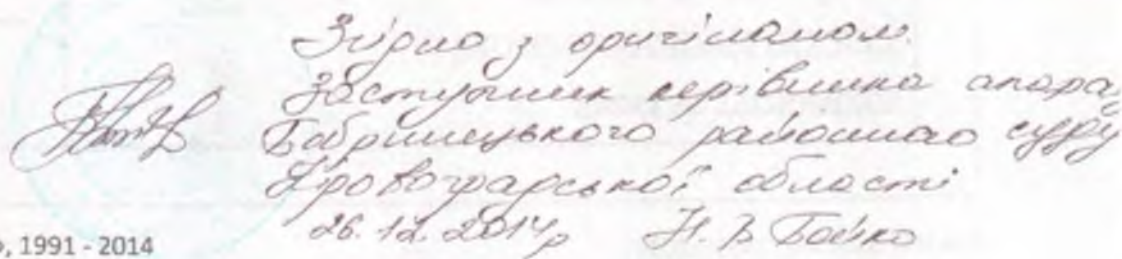 Згідно з оригіналом.
Заступник керівника апара
Бобринецького районного суду
Кіровоградської області
26.12.2014р Н. В. Бойко
, 1991 - 2014